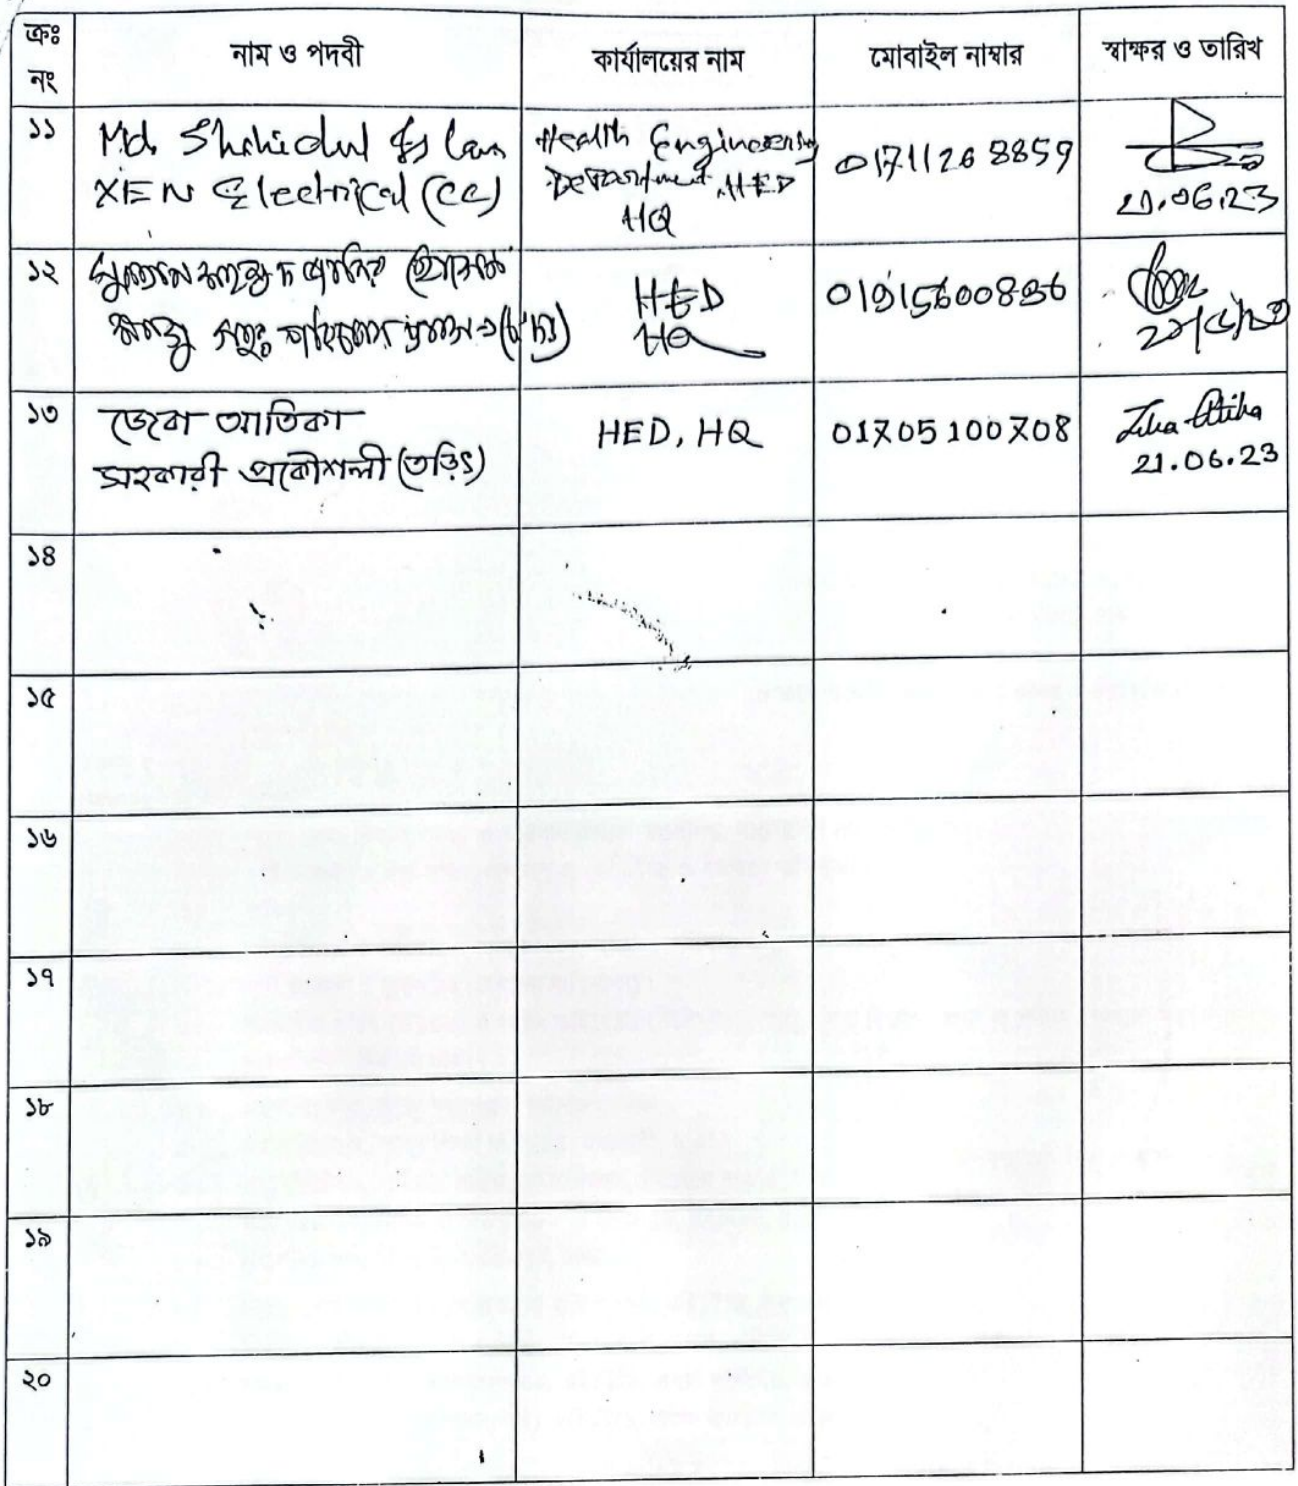 ক্রঃ
নং
নাম ও পদবী
কার্যালয়ের নাম
মোবাইল নাম্বার
স্বাক্ষর ও তারিখ
১১
Md. Shahidul Islam
XEN Electrical (CC)
Health Engineering
Department, HED
HQ
01711268859
21.06.23
১২
HED
HQ
01915600836
১৩
জেবা আতিকা
সহকারী প্রকৌশলী (তড়িৎ)
HED, HQ
01705100708
Zeba Atika
21.06.23
১৪
১৫
১৬
১৭
১৮
১৯
২০